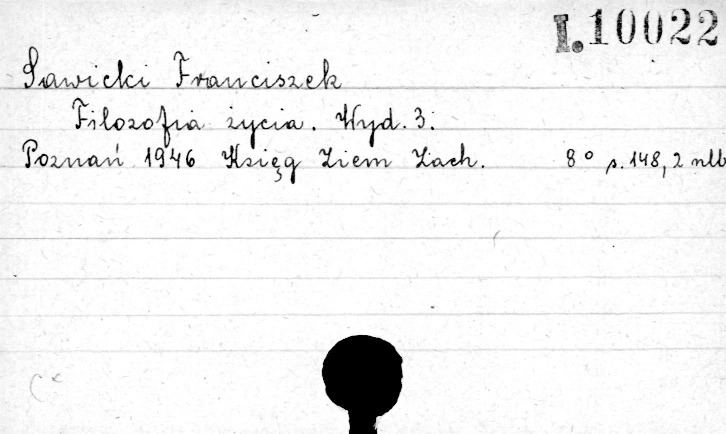 I.10022
Sawicki Franciszek
Filozofia życia. Wyd. 3.
Poznań 1946 Księg Ziem Zach. 8° s. 148, 2 nlb